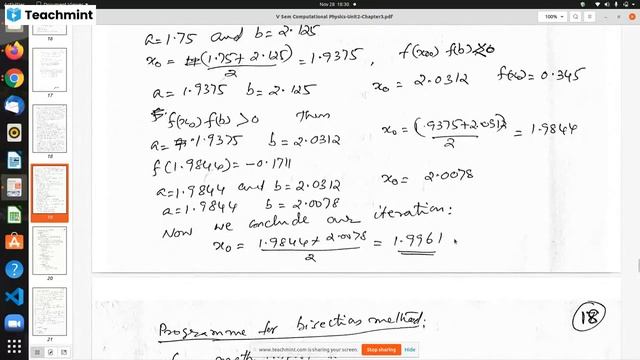 Activities Document Viewer Nov 28 18:30
Teachmint
V Sem Computational Physics-Unit2-Chapter3.pdf
100%
a=1.75 and b=2.125
x₀ = (1.75+2.125)/2 = 1.9375, f(x₀) f(b)>0
a=1.9375 b=2.125 x₀= 2.0312 f(x₀)=0.345
f(x₀) f(b) >0 Then
a= 1.9375 b=2.0312 x₀= (1.9375+2.0312)/2 = 1.9844
f(1.9844)=-0.1711
a=1.9844 and b=2.0312 x₀= 2.0078
a=1.9844 b=2.0078
Now we conclude our iteration:
x₀= (1.9844+2.0078)/2 = 1.9961
18
Programme for bisection method:
17
18
19
20
21
www.teachmint.com is sharing your screen. Stop sharing Hide